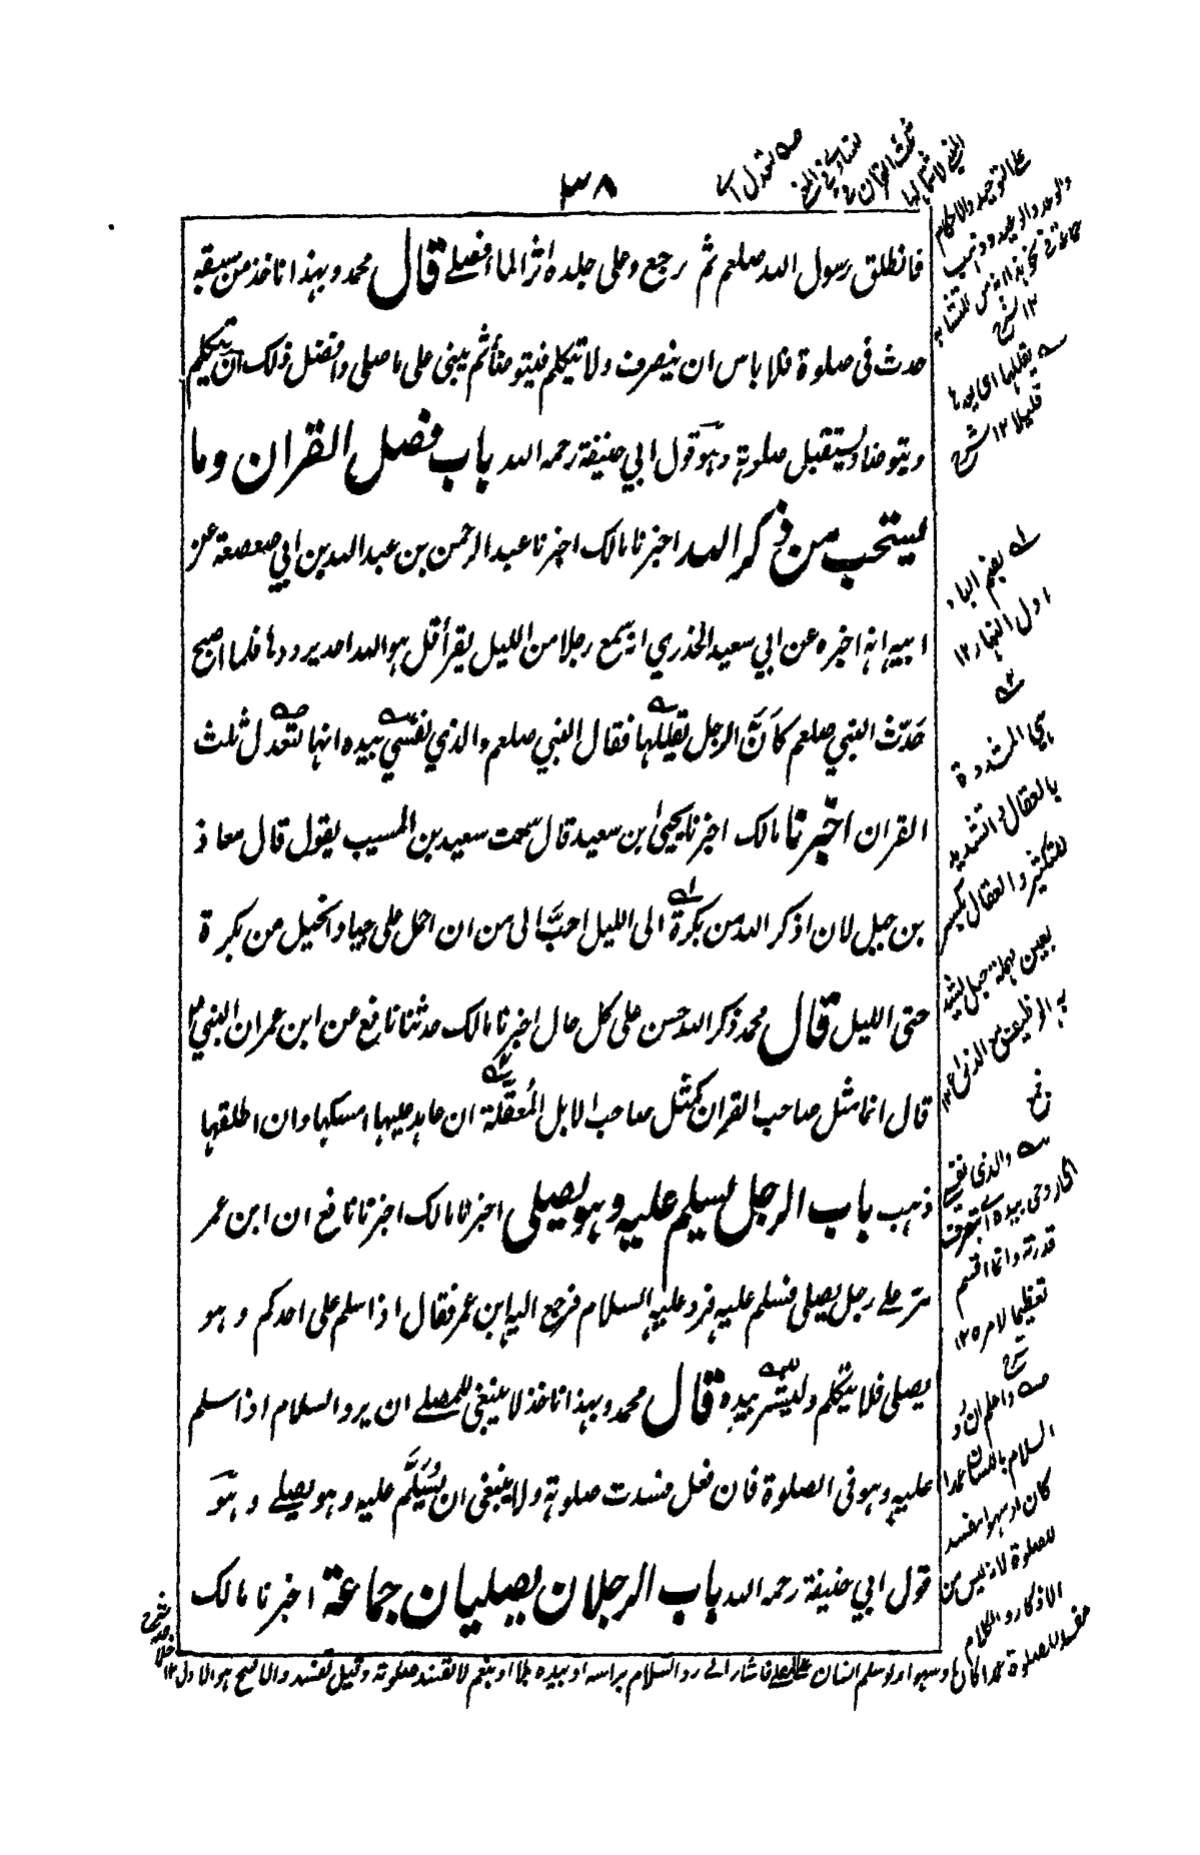 ٣٨
فانطلق رسول الله صلعم ثم رجع وعلى جلده اثر الماء فصلے قال محمد وبهذا ناخذ من سبقه
حدث فى صلوة فلا باس ان ينصرف ولا يتكلم فيتوضأ ثم يبنى على ما صلى وافضل ذلك ان يتكلم
ويتوضأ ويستقبل صلوته وهو قول ابي حنيفة رحمه الله باب فضل القران وما
يستحب من ذكر الله اخبرنا مالك اخبرنا عبد الرحمن بن عبد الله بن ابي صعصعة عن
ابيه انه اخبره عن ابي سعيد الخدري انه سمع رجلا من الليل يقرأ قل هو الله احد يرددها فلما اصبح
حَدّث النبي صلعم كَاَنَّ الرجل يقللها فقال النبي صلعم والذي نفسي بيده انها لتعدل ثلث
القران اخبرنا مالك اخبرنا يحيى بن سعيد قال سمعت سعيد بن المسيب يقول قال معاذ
بن جبل لان اذكر الله من بكرة الى الليل احبّ الى من ان احمل على جياد الخيل من بكرة
حتى الليل قال محمد ذكر الله حسن على كل حال اخبرنا مالك حدثنا نافع عن ابن عمر ان النبي
قال انما مثل صاحب القران كمثل صاحب الابل المُعقَّلة ان عاهد عليها امسكها وان اطلقها
ذهبت باب الرجل يسلم عليه وهو يصلى اخبرنا مالك اخبرنا نافع ان ابن عمر
مرّ علے رجل يصلى فسلم عليه فرد عليه السلام فرجع اليه ابن عمر فقال اذا سلم على احدكم وهو
يصلى فلا يتكلم وليشر بيده قال محمد وبهذا ناخذ لا ينبغى للمصلے ان يرد السلام اذا سلم
عليه وهو فى الصلوة فان فعل فسدت صلوته ولا ينبغى ان يُسَلَّم عليه وهو يصلے وهو
قول ابي حنيفة رحمه الله باب الرجلان يصليان جماعة اخبرنا مالك
على التوحيد والاحكام
يقللها اى يعدها
قليلا ١٢ شرح
بضم الباء
اول النهار ١٢
اى المشددة
بالعقال والتشديد
للتكثير والعقال بكسر
والذى نفسى
قدرته وانما اقسم
تعظيما لامره ١٢
واعلم ان رد
السلام باللسان عمدا
كان او سهوا مفسد
للصلوة لانه ليس من
الاذكار والكلام
مفسد للصلوة عمدا كان او سهوا ولو سلم انسان على المصلے فاشار الے رد السلام براسه او بيده بلا او بنعم لا تفسد صلوته وقيل تفسد والاصح هو الاول ١٢